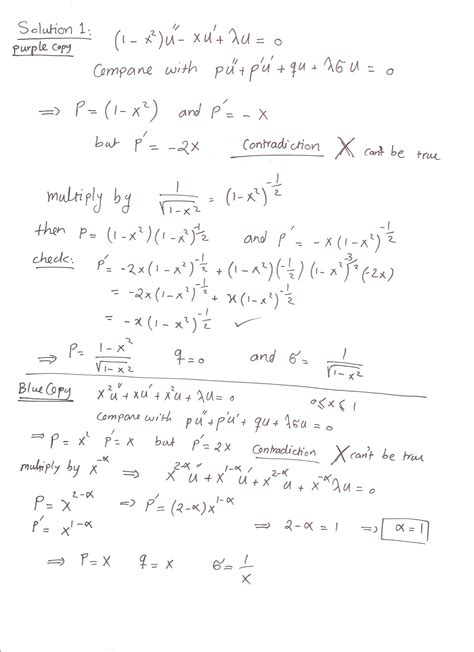 Solution 1:
purple copy
(1 - x²)u'' - xu' + λu = 0
Compare with pu'' + p'u' + qu + λσu = 0
⇒ P = (1 - x²) and P' = - x
but P' = -2x Contradiction X can't be true
multiply by 1/√(1-x²) = (1-x²)^(-1/2)
then P = (1-x²)(1-x²)^(-1/2) and P' = -x(1-x²)^(-1/2)
check: P' = -2x(1-x²)^(-1/2) + (1-x²)(-1/2)(1-x²)^(-3/2)(-2x)
= -2x(1-x²)^(-1/2) + x(1-x²)^(-1/2)
= -x(1-x²)^(-1/2) ✓
⇒ P = (1-x²)/√(1-x²) q = 0 and σ = 1/√(1-x²)
Blue Copy x²u'' + xu' + x²u + λu = 0 0 ≤ x ≤ 1
Compare with pu'' + p'u' + qu + λσu = 0
⇒ P = x² P' = x but P' = 2x Contradiction X can't be true
multiply by x^(-α) ⇒ x^(2-α)u'' + x^(1-α)u' + x^(2-α)u + x^(-α)λu = 0
P = x^(2-α) ⇒ P' = (2-α)x^(1-α)
P' = x^(1-α) ⇒ 2-α = 1 ⇒ α = 1
⇒ P = x q = x σ = 1/x